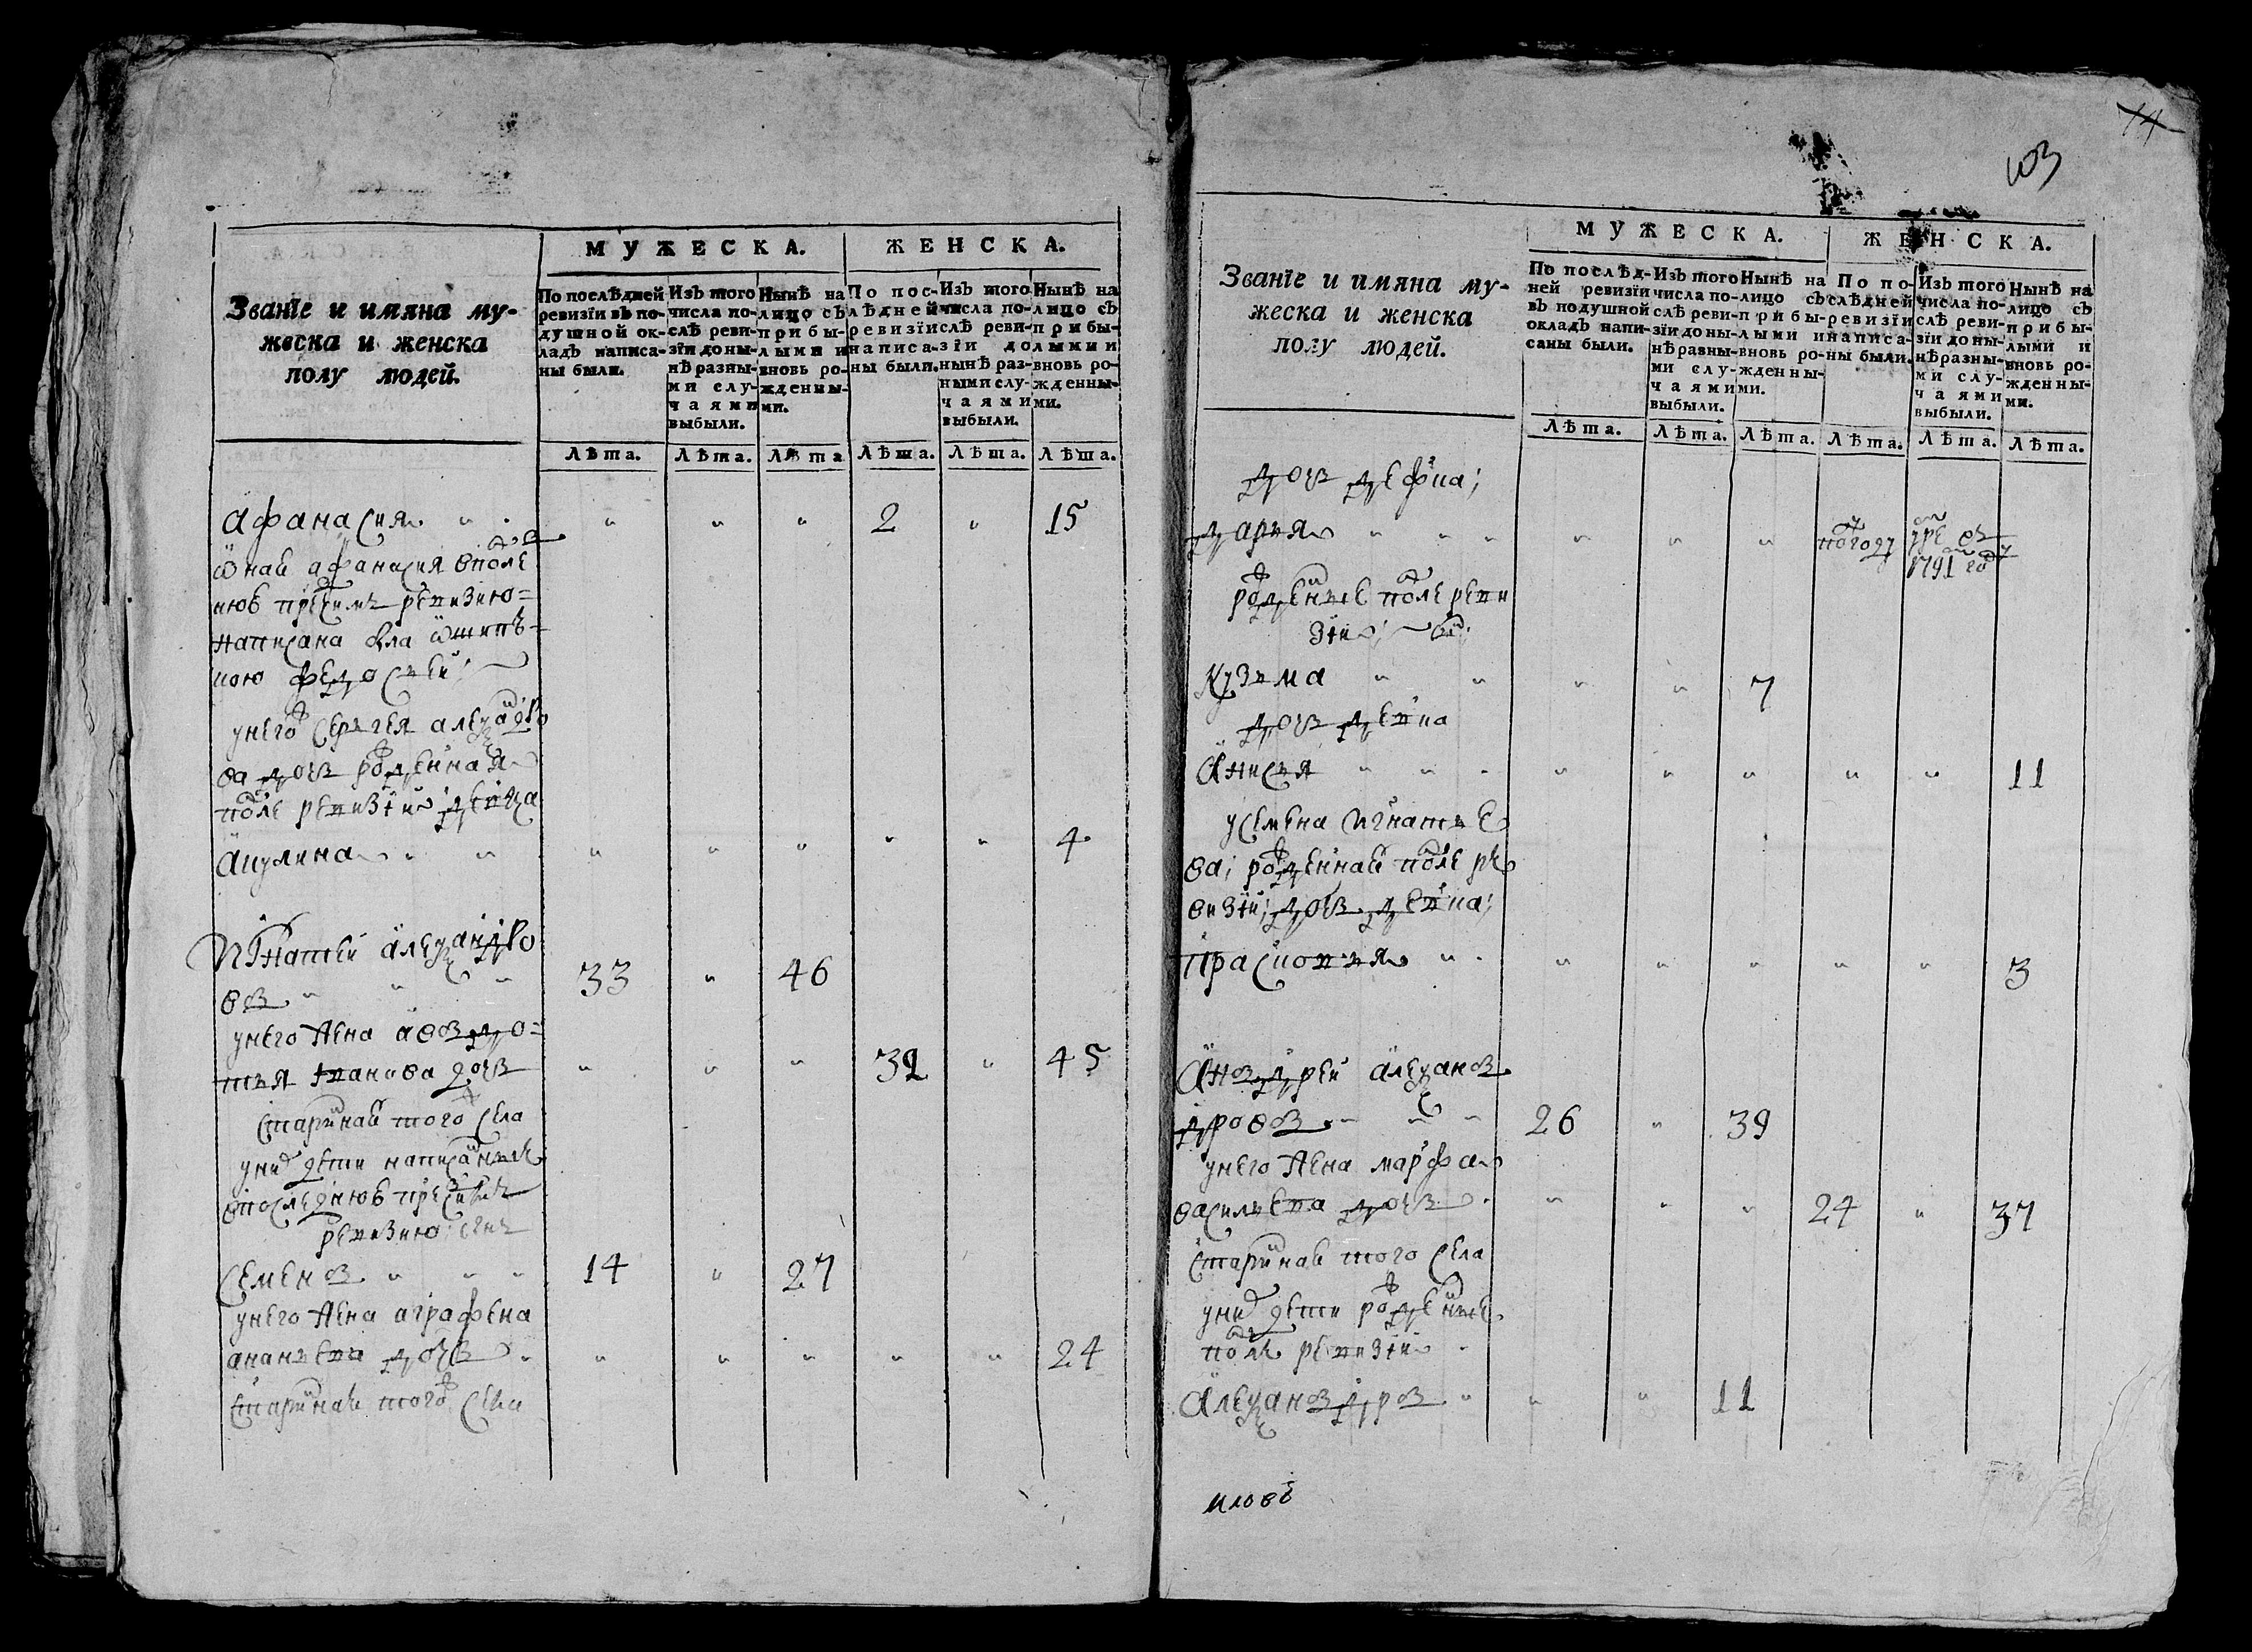 МУЖЕСКА. ЖЕНСКА.
Званїе и имяна му-
жеска и женска
полу людей.
По послѣдней
ревизїи въ по-
душной ок-
ладъ написа-
ны были.
Изъ того
числа по-
слѣ реви-
зїи до ны-
нѣ разны-
ми слу-
чаями
выбыли.
Нынѣ на
лицо съ
прибы-
лыми и
вновь ро-
жденны-
ми.
По пос-
лѣдней
ревизїи
написа-
ны были.
Изъ того
числа по-
слѣ реви-
зїи до
нынѣ раз-
ными слу-
чаями
выбыли.
Нынѣ на
лицо съ
прибы-
лыми и
вновь ро-
жденны-
ми.
Лѣта. Лѣта. Лѣта Лѣта. Лѣта. Лѣта.
афанасия " " " " " 2 " 15
ѿнай афанасия вполе
нюю пресимъ ревизию=
написана была ѿшипъ=
кою федосьей;
унего сергея алеѯандро
ва дочь рожденная
после ревизїи девка
акулина " " " " " " " 4
Игнатей алеѯандро
въ " " " 33 " 46
унего жена авдо=
тья иванова дочь " " " 32 " 45
старинная того села
уних дети написанныя
впоследнюю пресимъ
ревизию сынъ
семенъ " " " 14 " 27
унего жена аграфена
ананьева дочь " " " " " " 24
старинная того села
14
103
МУЖЕСКА. ЖЕНСКА.
Званїе и имяна му-
жеска и женска
полу людей.
По послѣд-
ней ревизїи
въ подушной
окладъ напи-
саны были.
Изъ того
числа по-
слѣ реви-
зїи до ны-
нѣ равны-
ми слу-
чаями
выбыли.
Нынѣ на
лицо съ
прибы-
лыми и
вновь ро-
жденны-
ми.
По по-
слѣдней
ревизїи
написа-
ны были.
Изъ того
числа по-
слѣ реви-
зїи до ны-
нѣ разны-
ми слу-
чаями
выбыли.
Нынѣ на
лицо съ
прибы-
лыми и
вновь ро-
жденны-
ми.
Лѣта. Лѣта. Лѣта. Лѣта. Лѣта. Лѣта.
дочь девка;
дарья " " " " " " полгоду
1791 году
рожденные после реви
зїи;
кузьма " " " " 7
дочь девка
анисья " " " " " " " " 11
усемена игнатье
ва; рожденная после ре
визїи; дочь девка;
прасковья " " " " " " " 3
андрей алеѯан
дровъ " " 26 " 39
унего жена марфа
васильева дочь " " " " 24 " 37
старинная того села
уних дети рожденные
после ревизїи
алеѯандръ " " " 11
иловъ